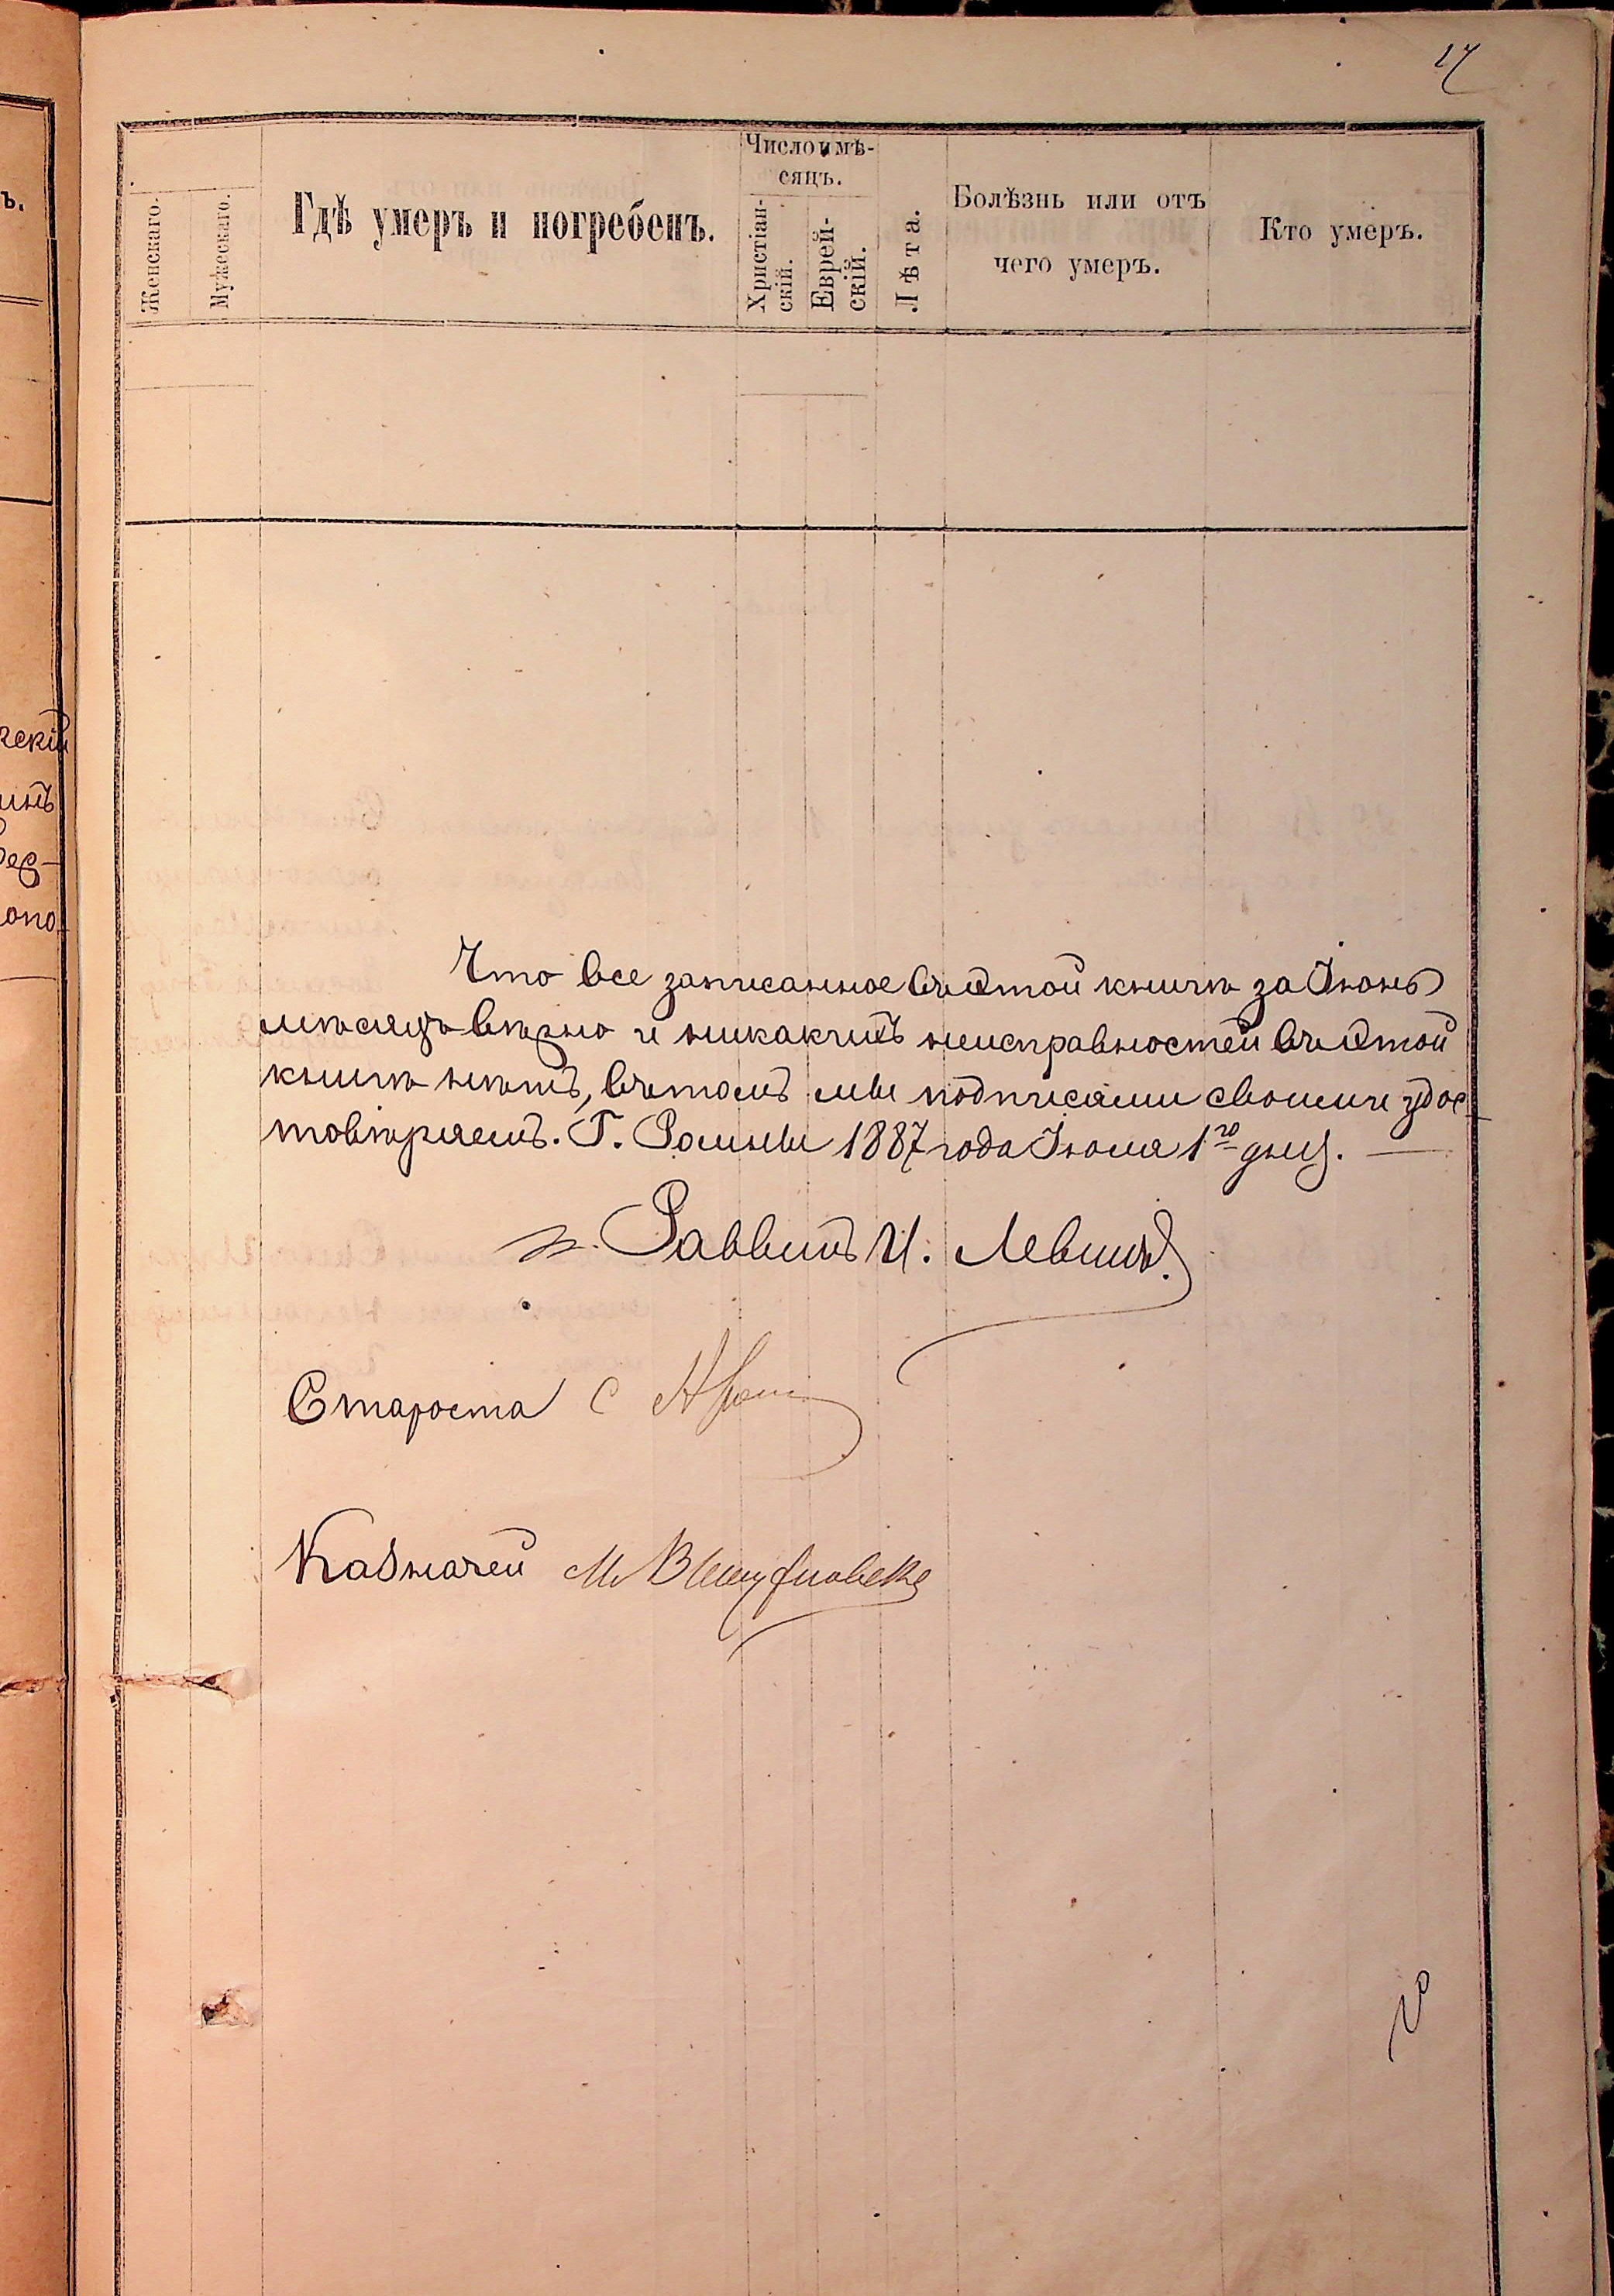 17
Число и мѣ-
сяцъ.
Женскаго.
Мужескаго.
Гдѣ умеръ и погребенъ.
Христіан-
скій.
Еврей-
скій.
Лѣта.
Болѣзнь или отъ
чего умеръ.
Кто умеръ.
ъ.
Что все записанное въ этой книгѣ за Іюнь
мѣсяцъ вѣрно и никакихъ неисправностей въ этой
книгѣ нѣтъ, въ томъ мы подписами своими удос-
товѣряемъ. Г. Ромны 1887 года Іюля 1го дня.
Раввинъ И. Левинъ.
Староста С
Казначей М